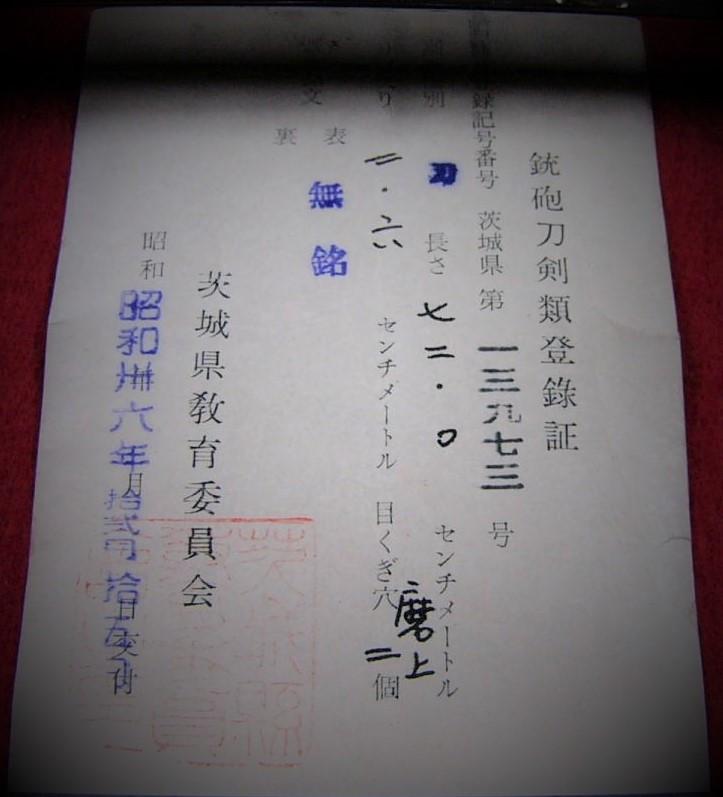 銃砲刀剣類登録証
録記号番号 茨城県 第 一三九七三 号
別 刀 長さ 七二・〇 センチメートル
磨上
り 二・六 センチメートル 目くぎ穴 二 個
文 表 無銘
裏
茨城県教育委員会
昭和 昭和卅六年 月 拾弐月拾五日 日交付